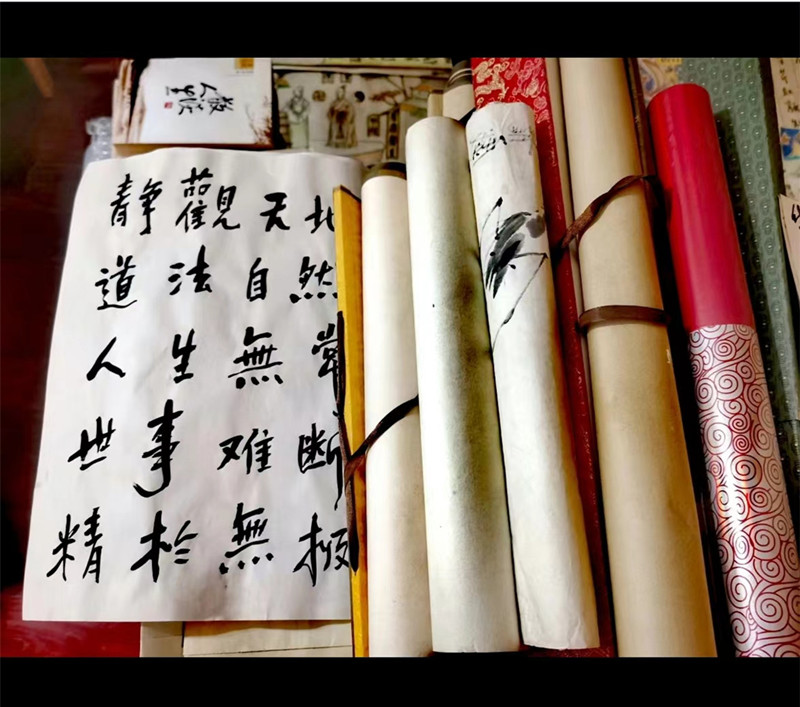 静觀天
道法自然
人生無常
世事难断
精於無